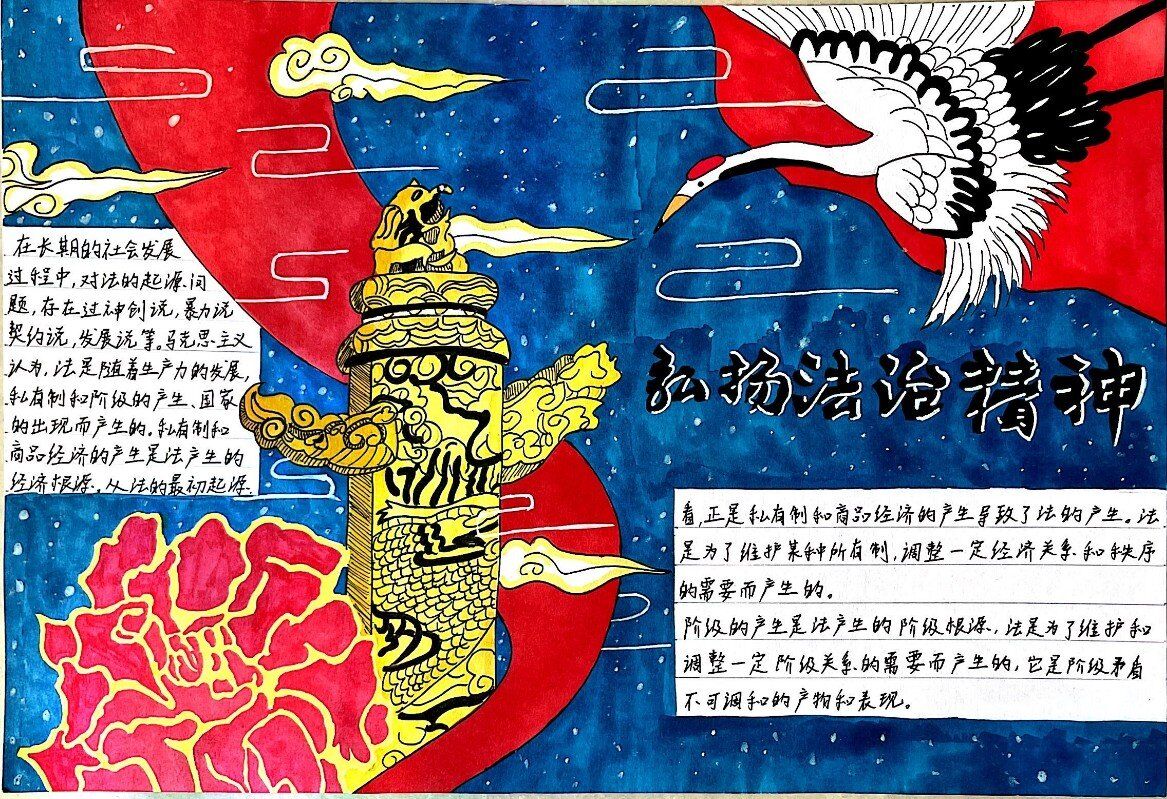 在长期的社会发展
过程中，对法的起源问
题，存在过神创说，暴力说
契约说，发展说等。马克思主义
认为，法是随着生产力的发展，
私有制和阶级的产生、国家
的出现而产生的。私有制和
商品经济的产生是法产生的
经济根源。从法的最初起源
弘扬法治精神
看，正是私有制和商品经济的产生导致了法的产生。法
是为了维护某种所有制，调整一定经济关系和秩序
的需要而产生的。
阶级的产生是法产生的阶级根源，法是为了维护和
调整一定阶级关系的需要而产生的，它是阶级矛盾
不可调和的产物和表现。